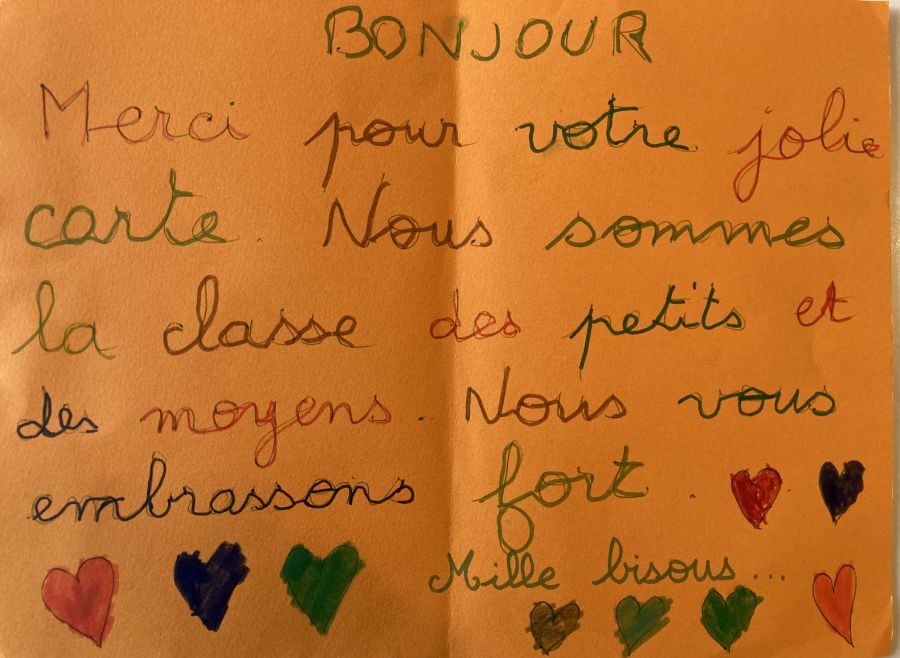 BONJOUR
Merci pour votre jolie
carte. Nous sommes
la classe des petits et
des moyens. Nous vous
embrassons fort.
Mille bisous...